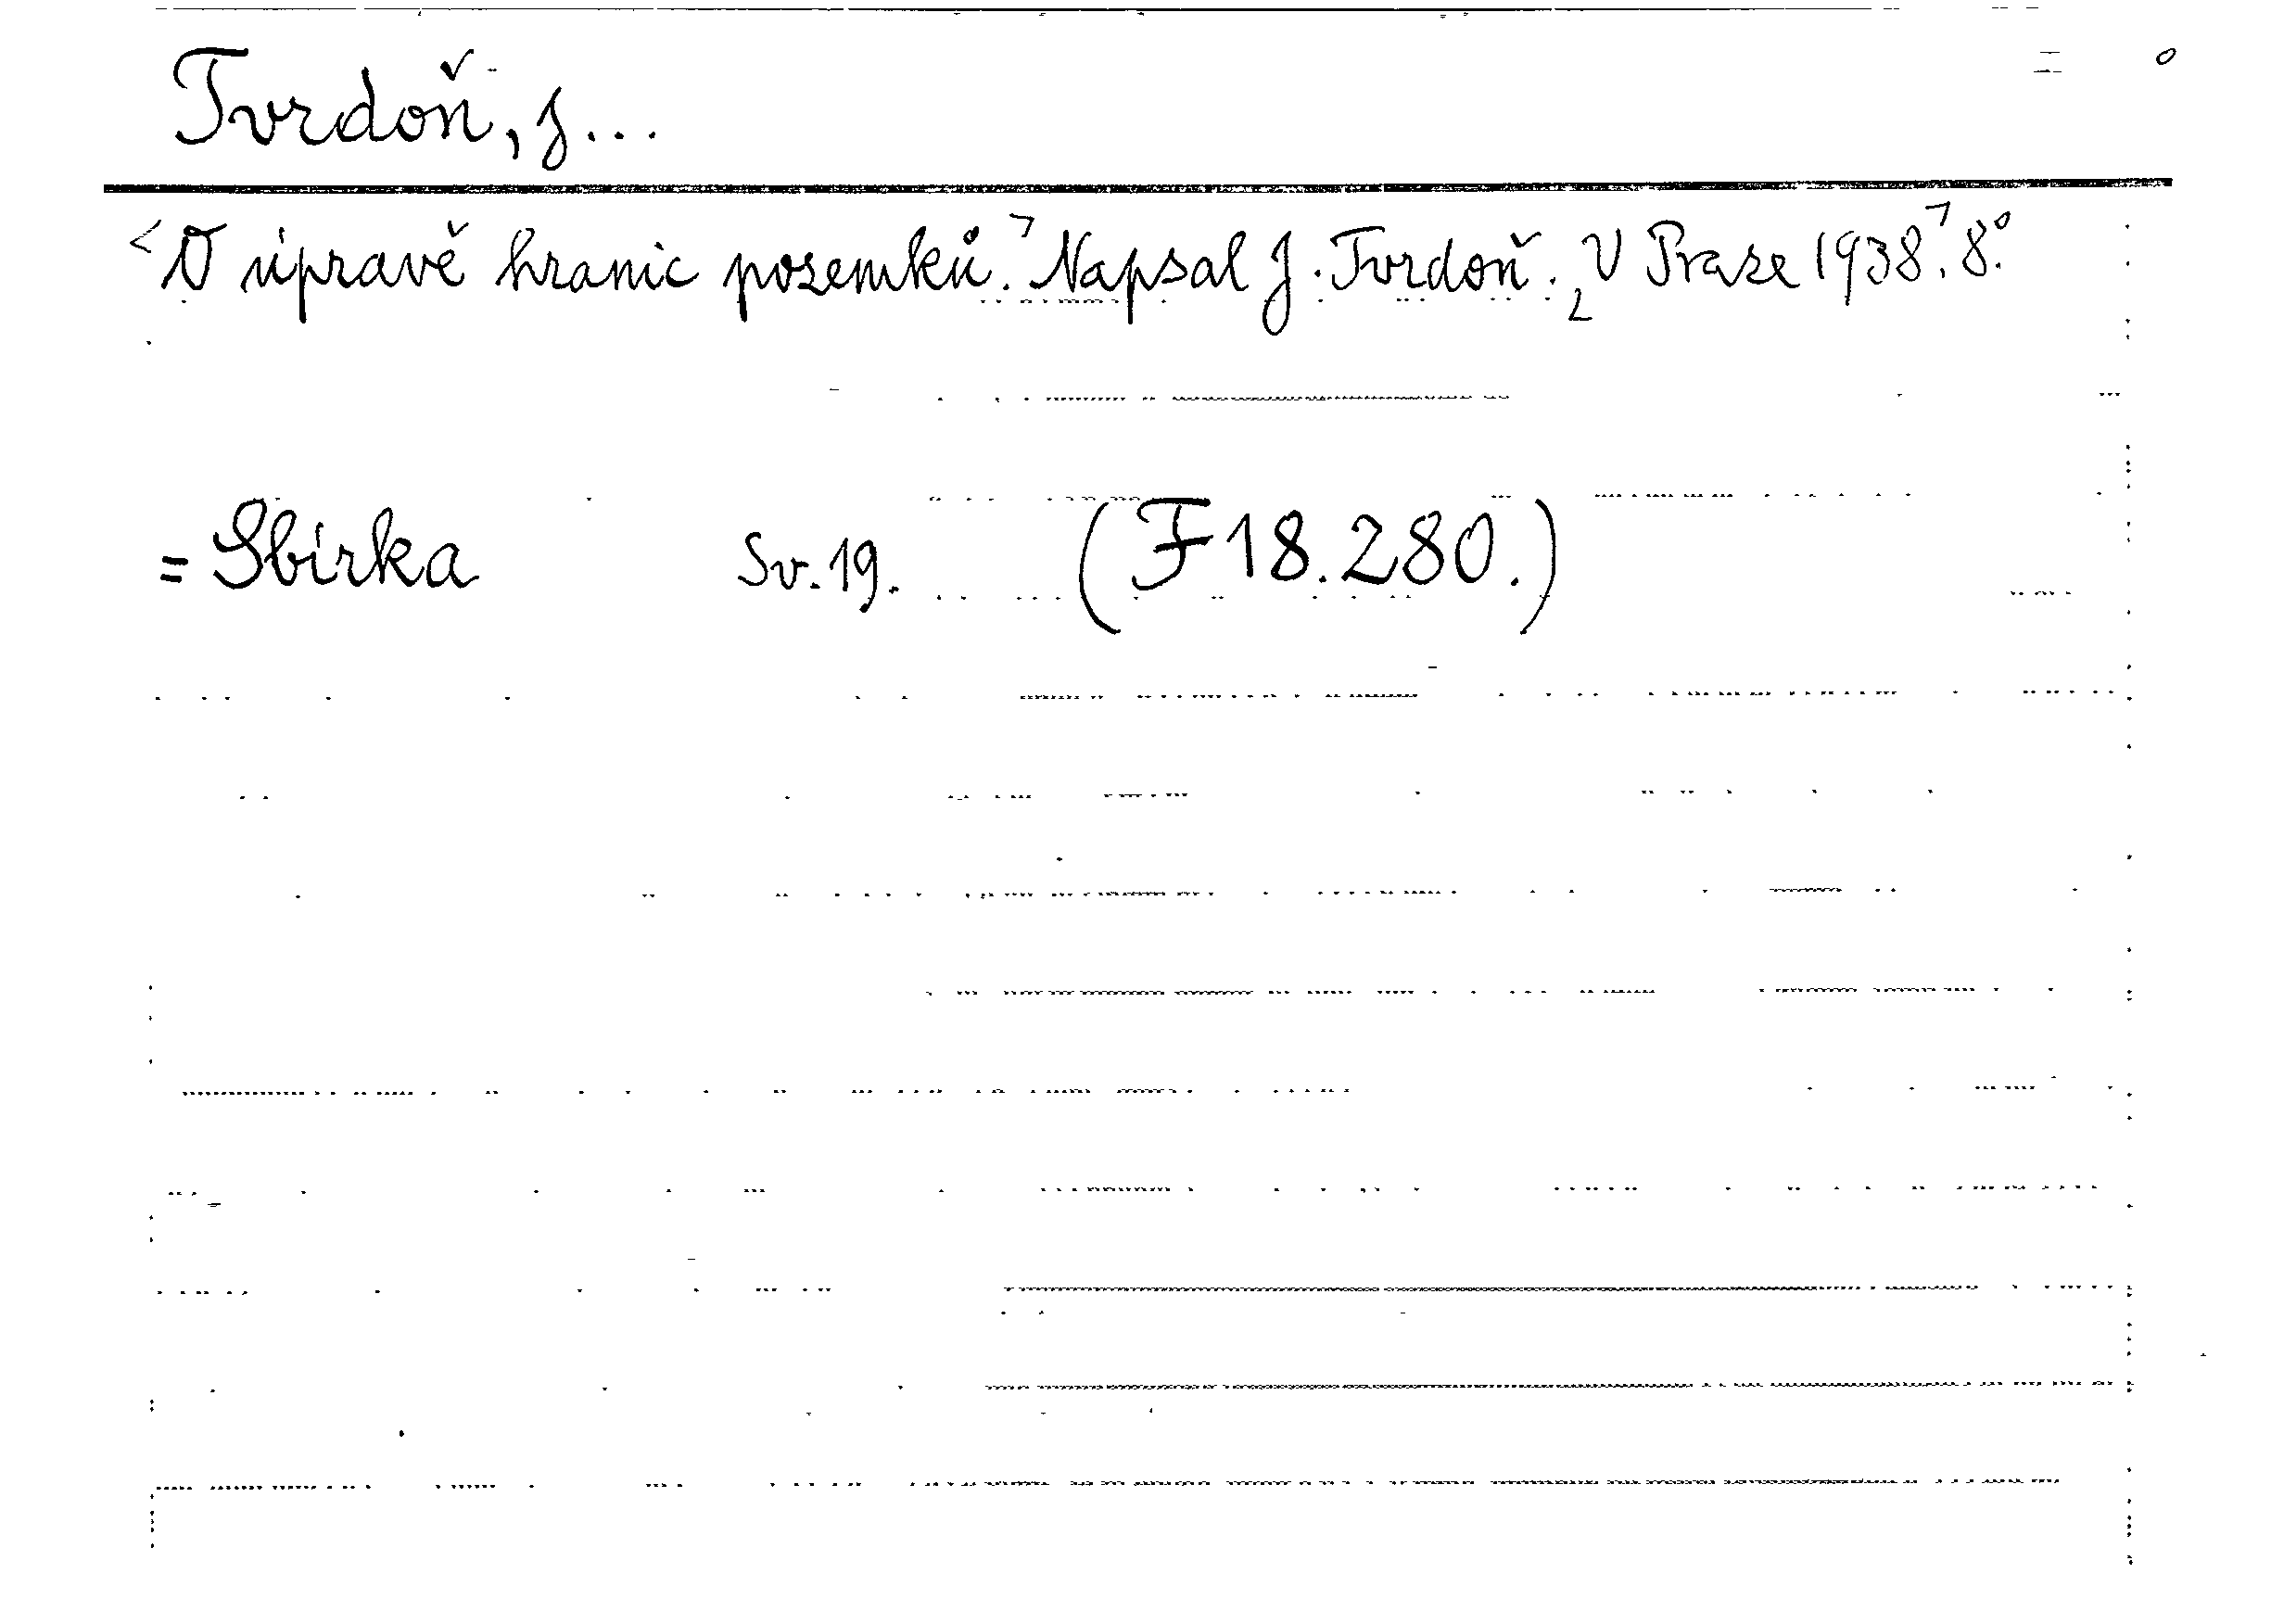 Tvrdoň, J...
<O úpravě hranic pozemků.> Napsal J. Tvrdoň. V Praze 1938. 8.°
= Sbírka Sv. 19. (F 18.280.)